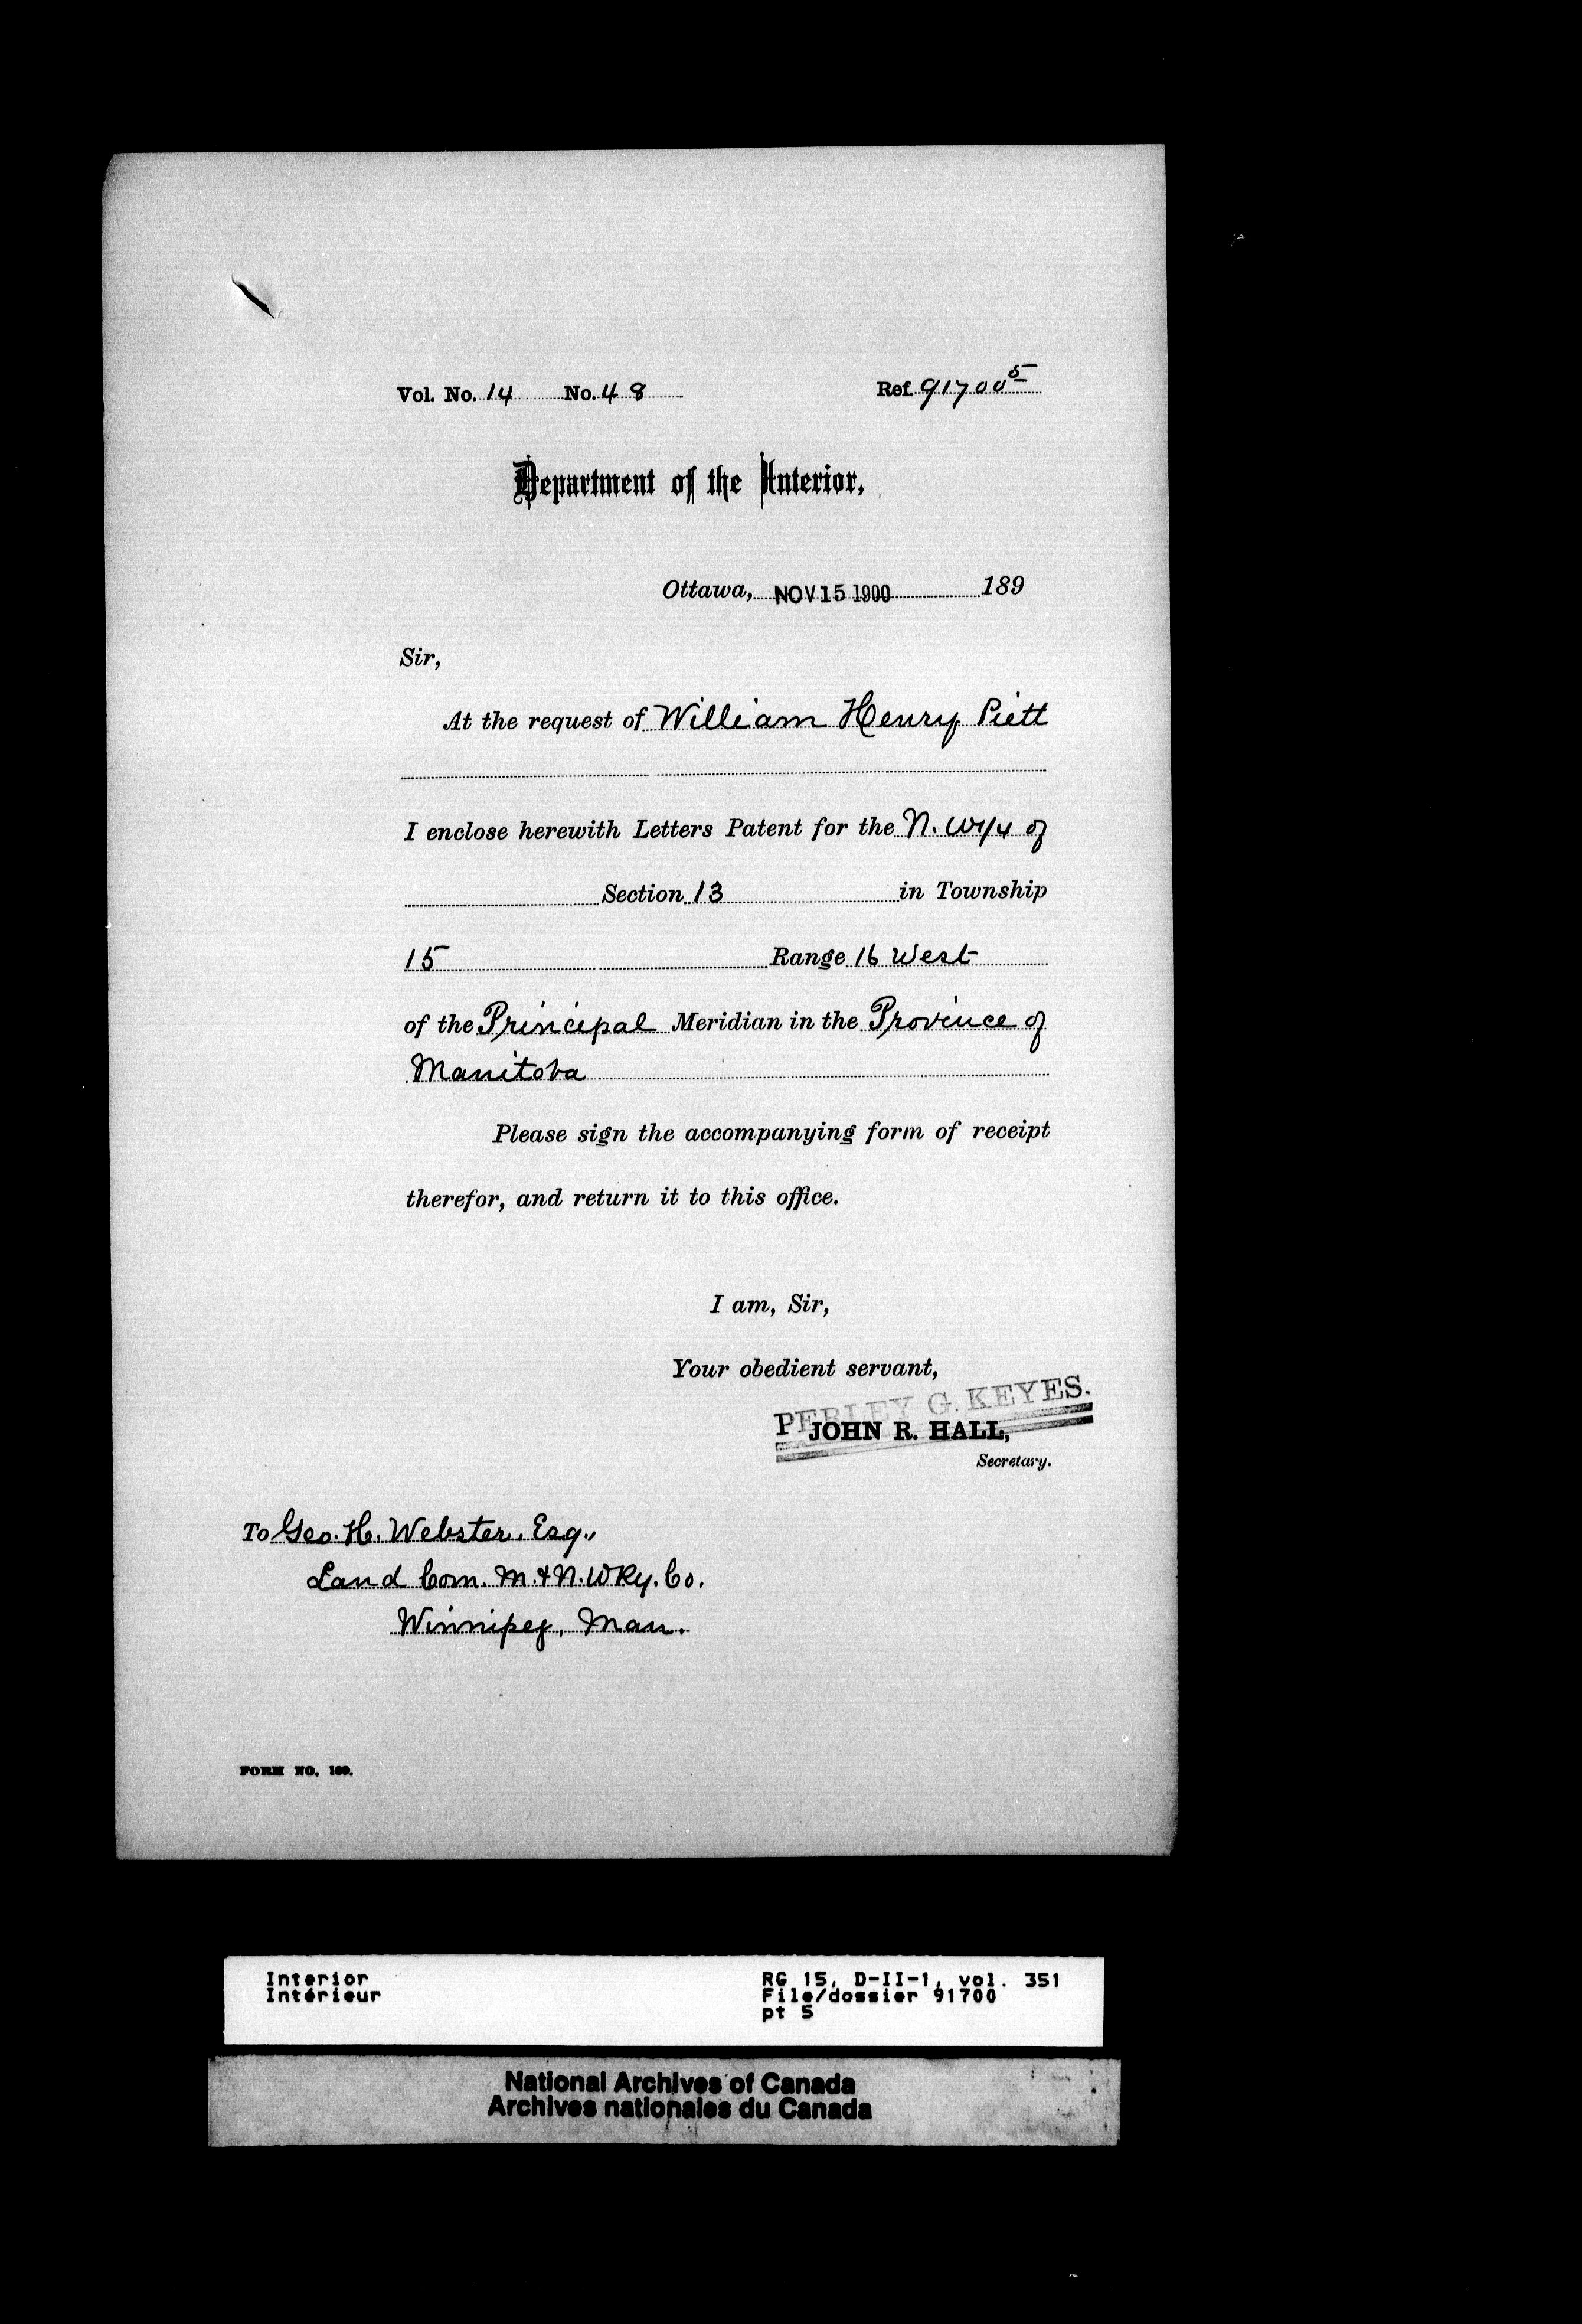 Vol. No. 14 No. 48 Ref. 91700 5
Department of the Interior,
Ottawa, NOV 15 1900 189
Sir,
At the request of William Henry Piett
I enclose herewith Letters Patent for the N. W 1/4 of
Section 13 in Township
15 Range 16 West
of the Principal Meridian in the Province of
Manitoba
Please sign the accompanying form of receipt
therefor, and return it to this office.
I am, Sir,
Your obedient servant,
PERLEY G. KEYES.
JOHN R. HALL,
Secretary.
To Geo. H. Webster, Esq.,
Land Com. M. & N. W Ry. Co.
Winnipeg, Man.
FORM NO. 169.
Interior RG 15, D-II-1, vol. 351
Intérieur File/dossier 91700
pt 5
National Archives of Canada
Archives nationales du Canada